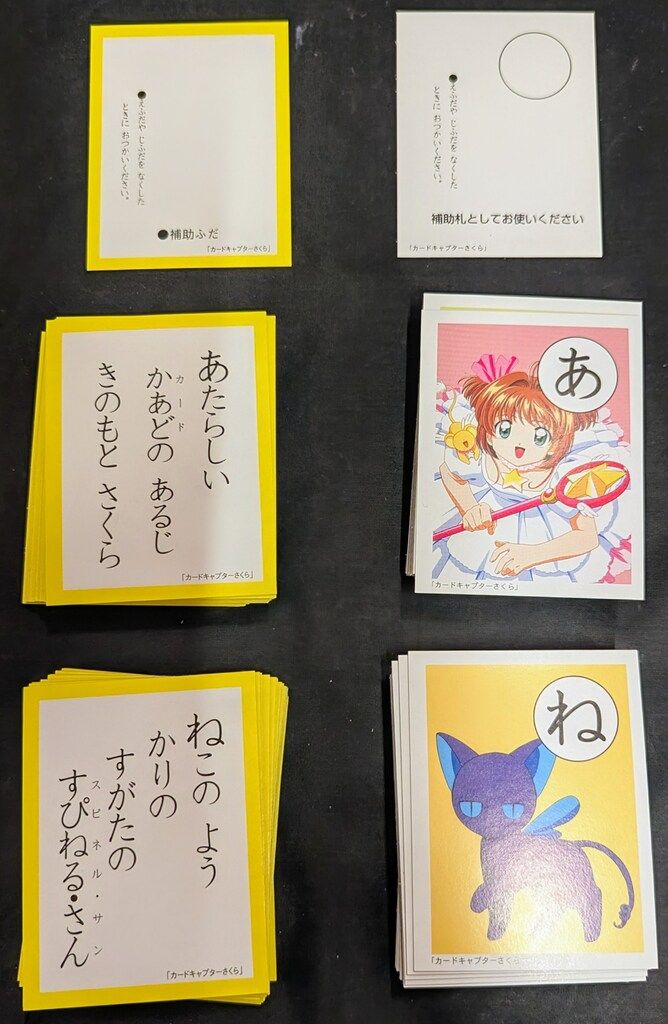 ●えふだや じふだを なくした
ときに おつかいください。
●補助ふだ
「カードキャプターさくら」
●えふだや じふだを なくした
ときに おつかいください。
補助札としてお使いください
「カードキャプターさくら」
あたらしい
かあどの あるじ
カード
きのもと さくら
「カードキャプターさくら」
あ
「カードキャプターさくら」
ねこの よう
かりの
すがたの
すぴねる・さん
スピネル・サン
「カードキャプターさくら」
ね
「カードキャプターさくら」